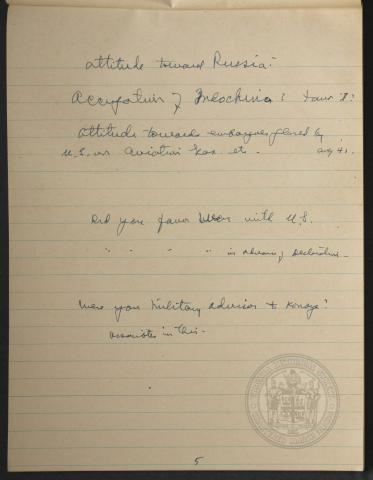 attitude toward Russia?
Occupation of Indochina?
attitude towards embargoes placed by
U.S. on Aviation Gas etc. Aug 41.
Did you favor War with U.S.
" " " " in advance of Declaration.
Were you Military advisor to Konoye?
associates in this.
5